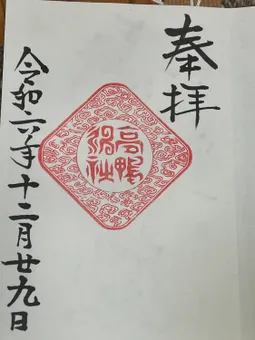 奉拝
高鴨神社
令和六年十二月廿九日